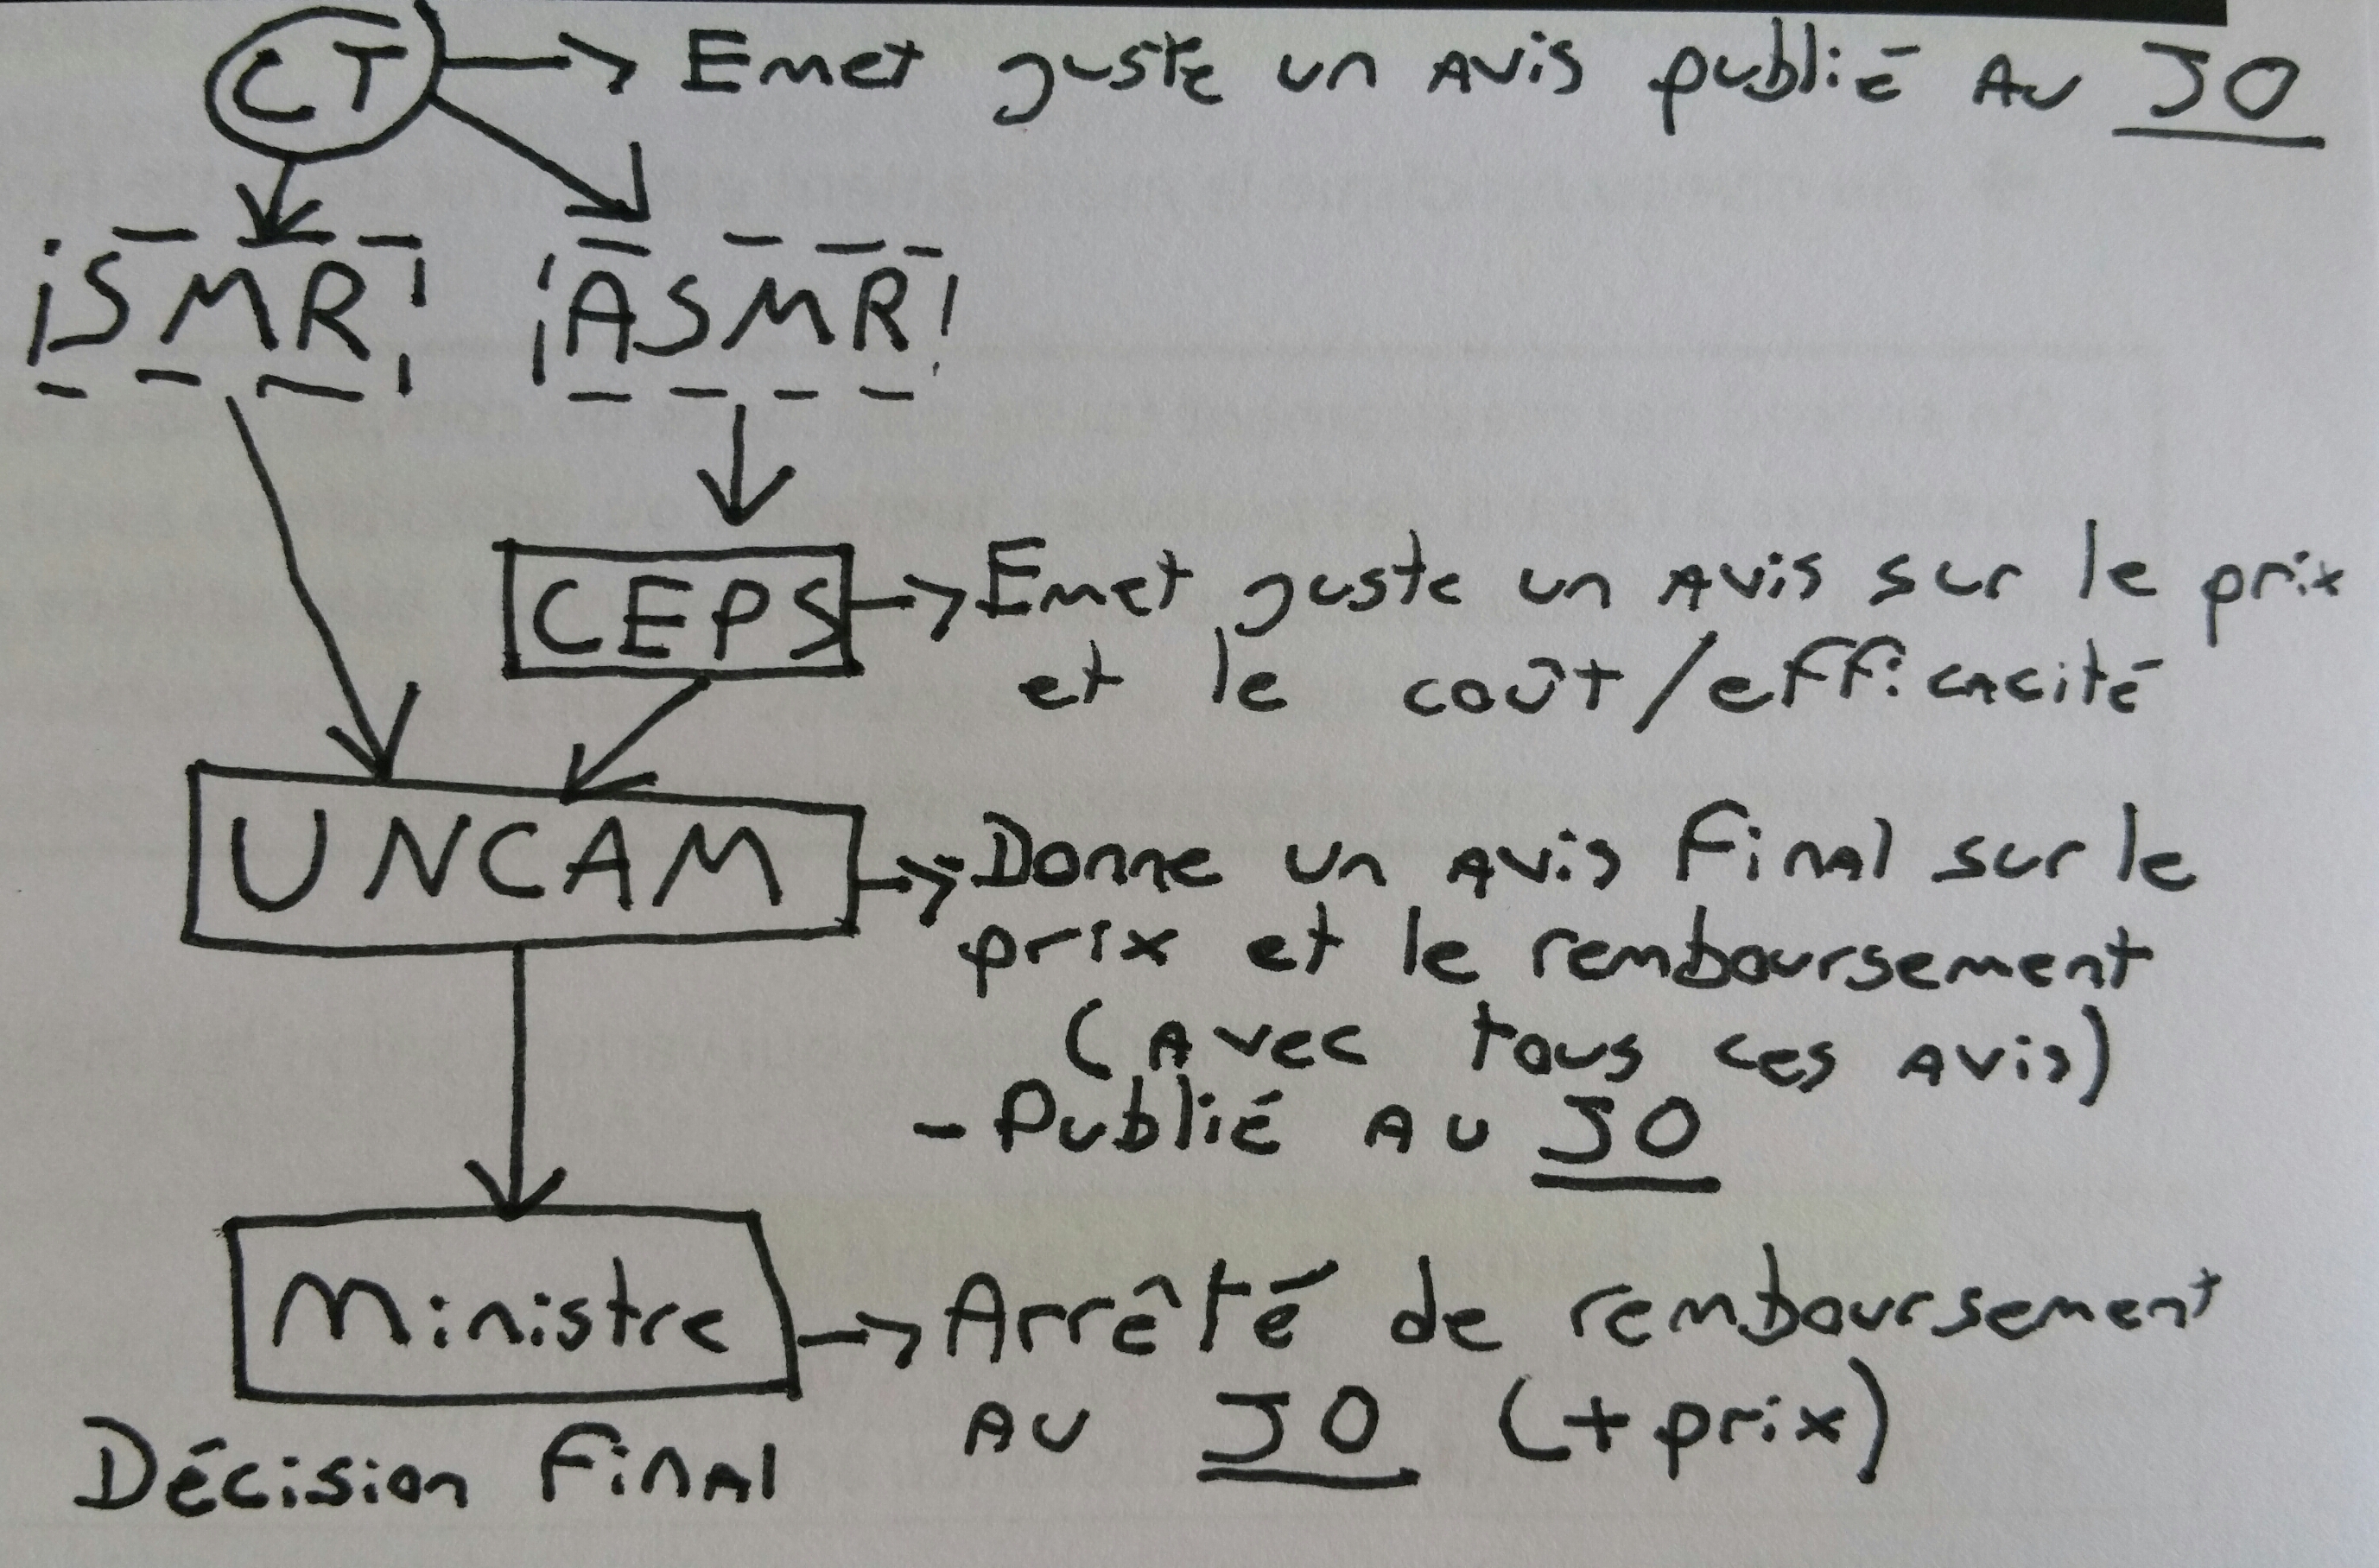 CT → Emet juste un avis publié au JO
SMR ASMR
CEPS → Emet juste un avis sur le prix
et le coût/efficacité
UNCAM → Donne un avis final sur le
prix et le remboursement
(avec tous ces avis)
- Publié au JO
Ministre → Arrêté de remboursement
au JO (+ prix)
Décision final